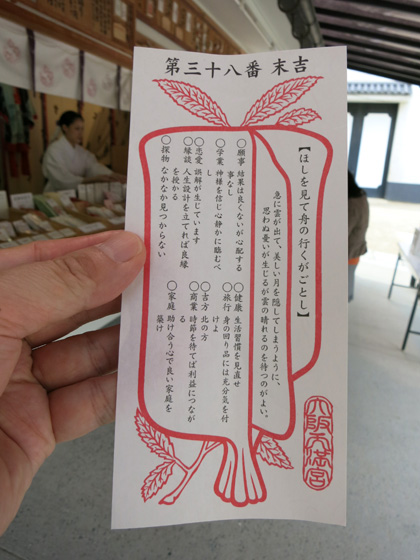 第三十八番 末吉
【ほしを見て舟の行くがごとし】
急に雲が出て、美しい月を隠してしまうように、
思わぬ憂いが生じるが雲の晴れるのを待つのがよい。
○願事 結果は良くないが心配する
事なし
○学業 神様を信じ心静かに臨むべ
し
○恋愛 誤解が生じています
○縁談 人生設計を立てれば良縁
を授かる
○探物 なかなか見つからない
○健康 生活習慣を見直せ
○旅行 身の回り品には充分気を付
けよ
○吉方 北の方
○商業 時節を待てば利益につなが
る
○家庭 助け合う心で良い家庭を
築け
大阪天満宮